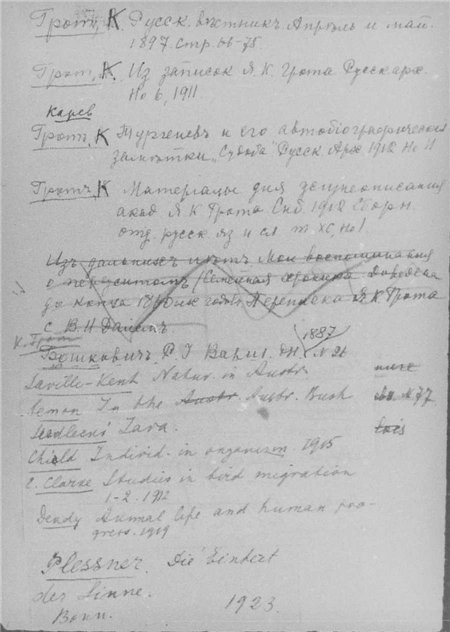 Гротъ, К. Русск. вѣстникъ Апрѣль и май
1897. стр. 66-75
Гротъ, К. Из записок Я. К. Грота Русск арх.
№ 6, 1911.
Гротъ, К Тургеневъ и его автобіографическія
замѣтки, Русск Арх 1912 № 11
Гротъ, К. Матеріалы для жизнеописанія
акад Я К Грота. Спб. 1912 Сборн.
отд русск яз и сл т. XC, № 1.
Изъ дальнихъ лѣтъ Мои воспоминания
о пережитомъ / Семейная хроника
до конца годов Переписка Я. К. Грота
с В И Далемъ
К. Грот
1887
№ 21
Saville-Kent Natur. in Austr.
Lemon In the Austr. Austr. Bush № 77
Siedlecki Java.
Child Individ. in organism. 1915
C. Clarke Studies in bird migration
1-2. 1912
Dendy Animal life and human pro-
gress. 1919
Plessner. Die Einheit
der Sinne.
Bonn. 1923.